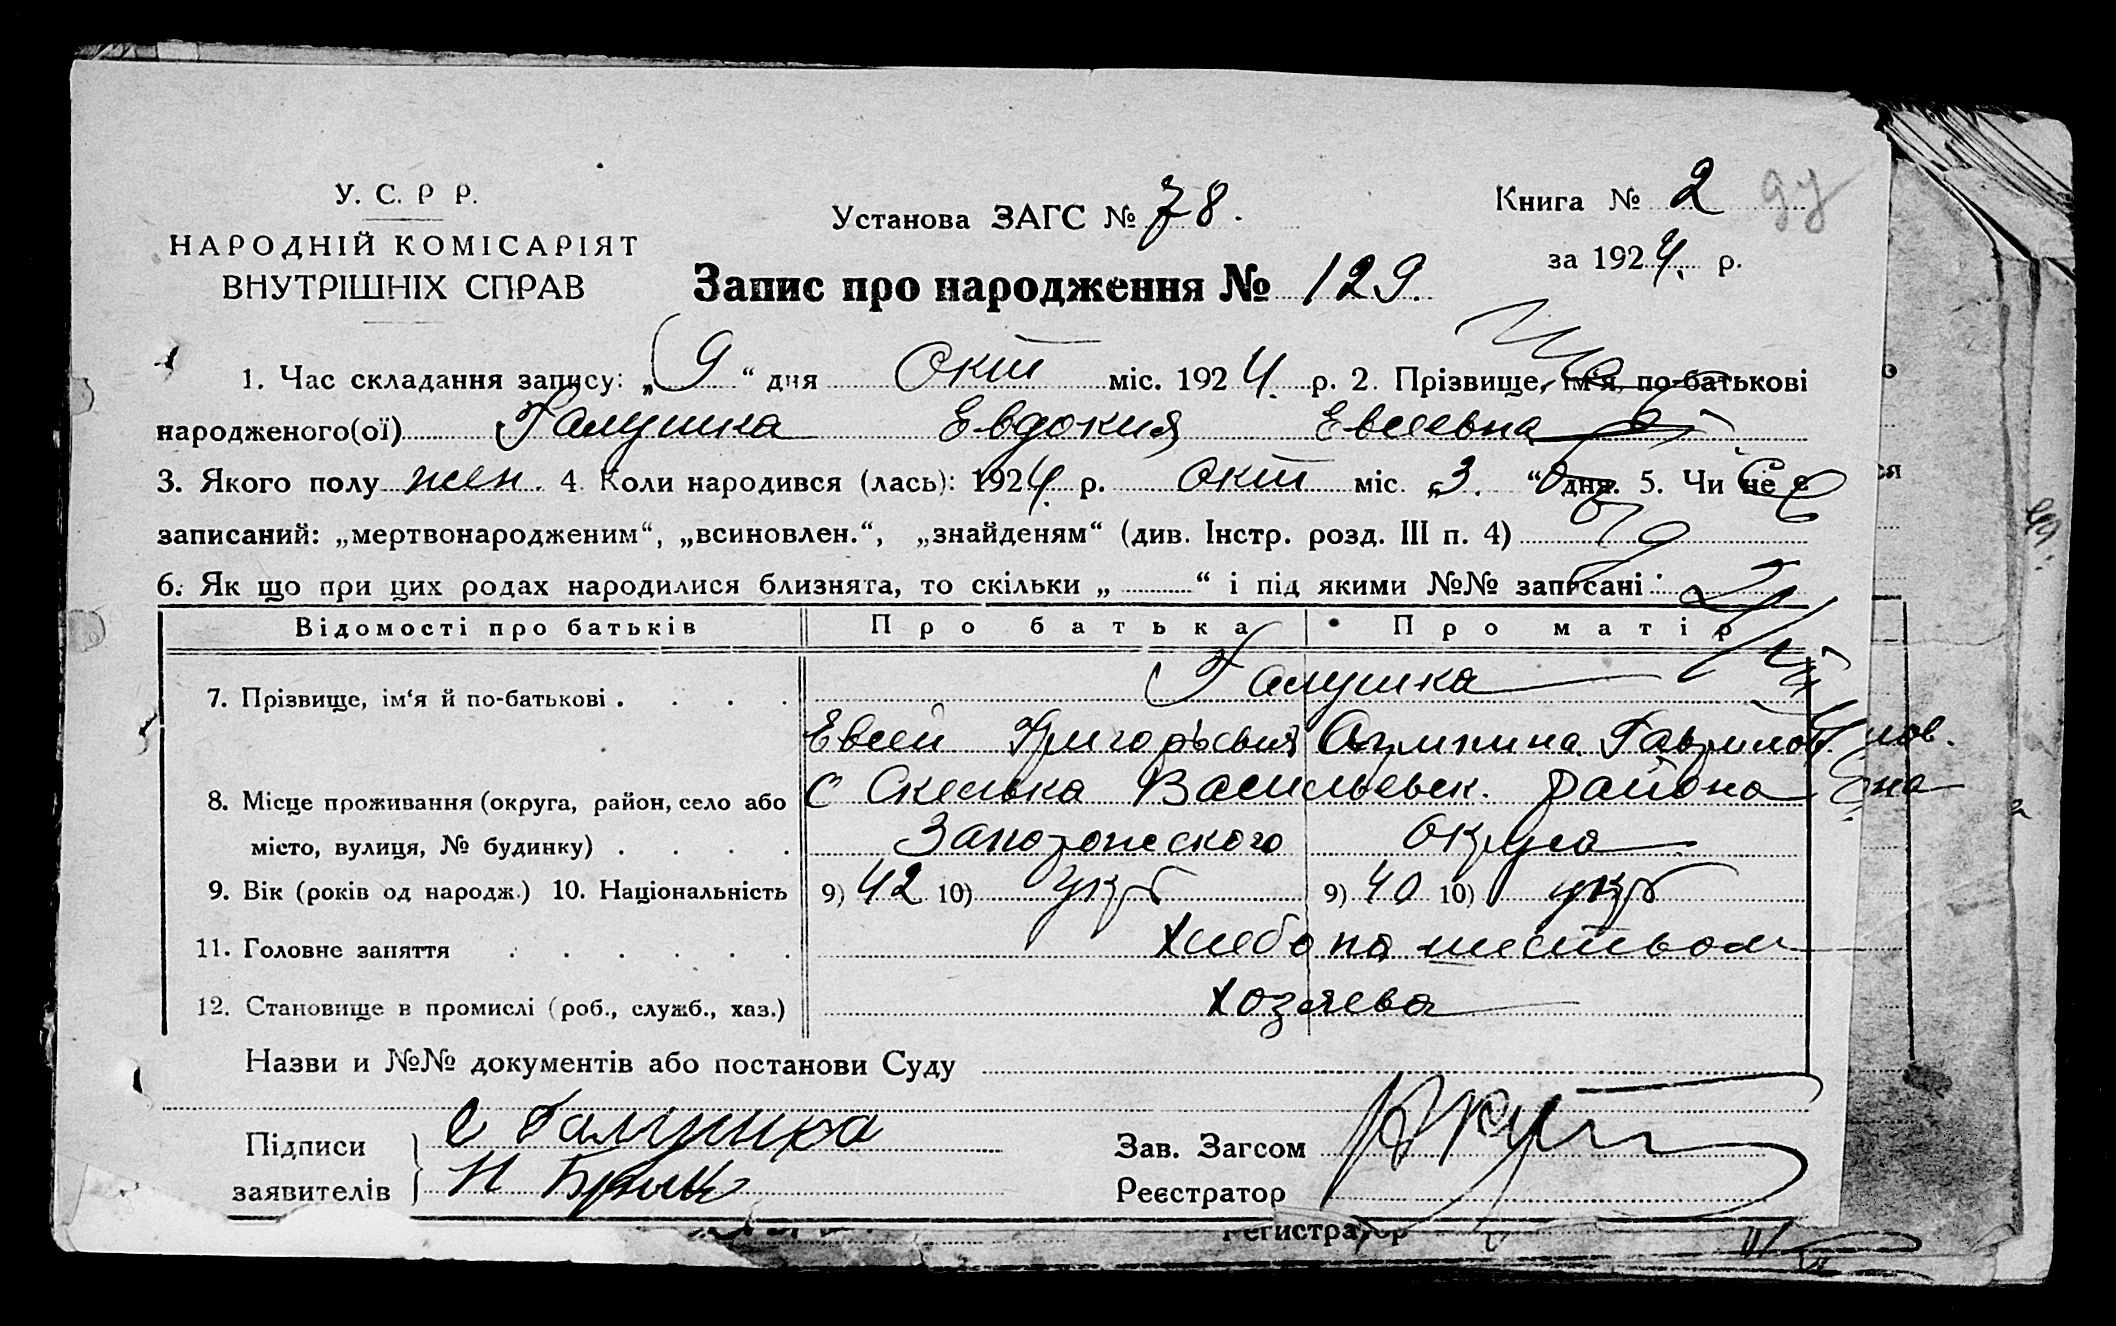 У. С. Р Р.
НАРОДНІЙ КОМІСАРІЯТ
ВНУТРІШНІХ СПРАВ
Установа ЗАГС № 78.
Книга № 2
за 1924 р.
Запис про народження № 129.
1. Час складання запису: „9“ дня Окт міс. 1924 р. 2. Прізвище, ім'я, по-батькові
народженого(ої) Галушка Евдокия Евсеевна
3. Якого полу жен. 4. Коли народився (лась): 1924 р. окт міс. „3.“ дня. 5. Чи не є
записаний: „мертвонародженим“, „всиновлен.“, „знайденям“ (див. Інстр. розд. III п. 4)
6. Як що при цих родах народилися близнята, то скільки „ “ і під якими №№ записані
Відомості про батьків Про батька Про матір
7. Прізвище, ім‘я й по-батькові . . . . Галушка
Евсей Григорьевич Агрипина Гаврилов.
8. Місце проживання (округа, район, село або с Скелька Васильевск. района
місто, вулиця, № будинку) . . . . Запорожского округа
9. Вік (років од народж.) 10. Національність 9) 42 10) укр 9) 40 10) укр
11. Головне заняття . . . . . . Хлебопашеством
12. Становище в промислі (роб., служб., хаз.) Хозяева
Назви и №№ документів або постанови Суду
Підписи Е Галушка Зав. Загсом
заявителів Н Реєстратор
Регистратор